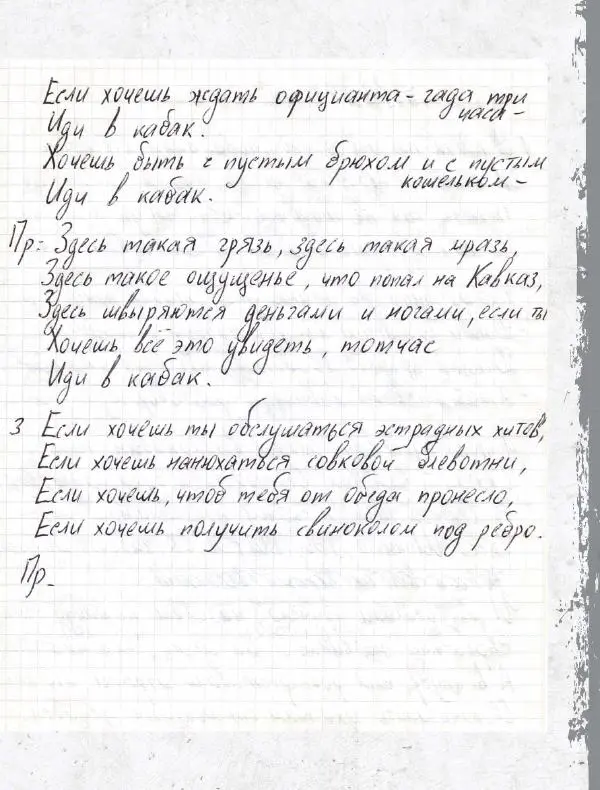 Если хочешь ждать официанта-гада три
часа-
Иди в кабак.
Хочешь быть с пустым брюхом и с пустым
кошельком-
Иди в кабак.
Пр: Здесь такая грязь, здесь такая мразь,
Здесь такое ощущенье, что попал на Кавказ,
Здесь швыряются деньгами и ногами, если ты
Хочешь всё это увидеть, тотчас
Иди в кабак.
3 Если хочешь ты обслушаться эстрадных хитов,
Если хочешь нанюхаться совковой блевотни,
Если хочешь, чтоб тебя от обеда пронесло,
Если хочешь получить свиноколом под ребро.
Пр_